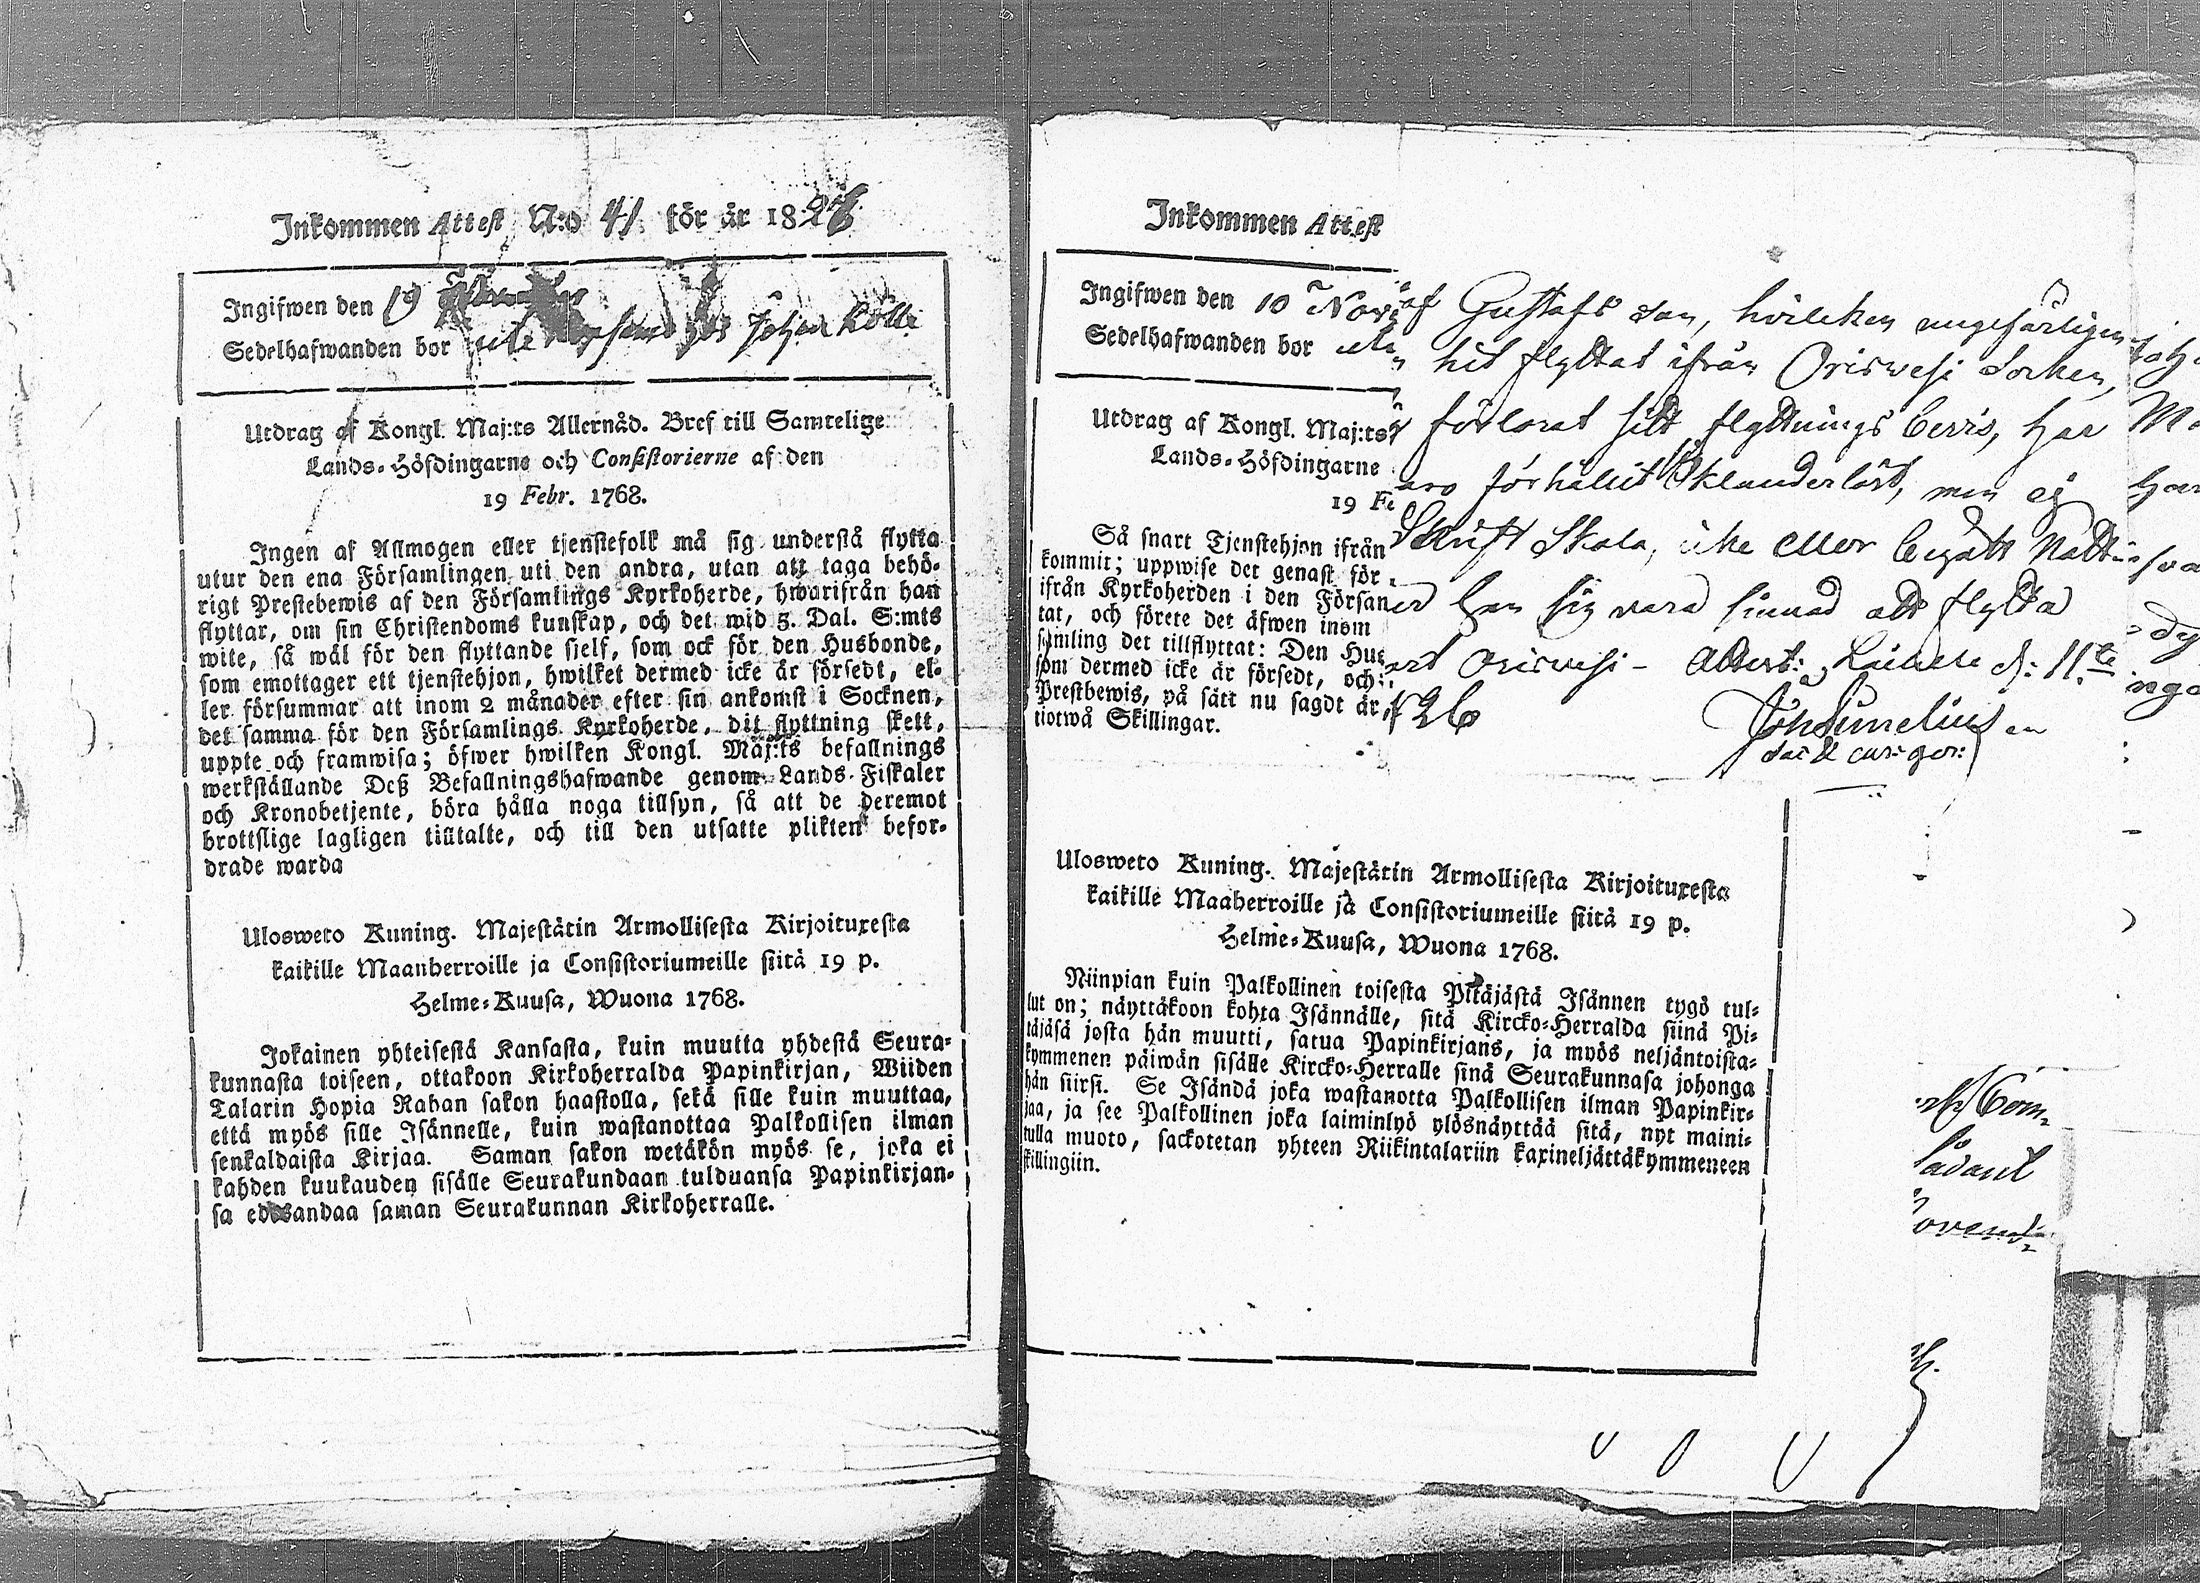 Inkommen Attest N:o 41 för år 1826
Ingifwen den 19
Sedelhafwanden bor hos Johan Kölli
Utdrag af Kongl. Maj:ts Allernåd. Bref till Samtelige
Lands-Höfdingarne och Consistorierne af den
19 Febr. 1768.
Ingen af Allmogen eller tjenstefolk må sig understå flytta
utur den ena Församlingen uti den andra, utan att taga behö-
rigt Prestebewis af den Församlings Kyrkoherde, hwarifrån han
flyttar, om sin Christendoms kunskap, och det wid 5. Dal. S:mts
wite, så wäl för den flyttande sjelf, som ock för den Husbonde,
som emottager ett tjenstehjon, hwilket dermed icke är försedt, el-
ler försummar att inom 2 månader efter sin ankomst i Socknen,
det samma för den Församlings Kyrkoherde, dit flyttning skett,
uppte och framwisa; öfwer hwilken Kongl. Maj:ts befallnings
werkställande Deß Befallningshafwande genom Lands-Fiskaler
och Kronobetjente, böra hålla noga tillsyn, så att de deremot
brottslige lagligen tilltalte, och till den utsatte plikten befor-
drade warda
Ulosweto Kuning. Majestätin Armollisesta Kirjoituxesta
kaikille Maanherroille ja Consistoriumeille siitä 19 p.
Helme-Kuusa, Wuona 1768.
Jokainen yhteisestä Kansasta, kuin muutta yhdestä Seura-
kunnasta toiseen, ottakoon Kirkoherralda Papinkirjan, Wiiden
Talarin Hopia Rahan sakon haastolla, sekä sille kuin muuttaa,
että myös sille Isännelle, kuin wastanottaa Palkollisen ilman
senkaldaista Kirjaa. Saman sakon wetäkön myös se, joka ei
kahden kuukauden sisälle Seurakundaan tulduansa Papinkirjan-
sa edesandaa saman Seurakunnan Kirkoherralle.
Inkommen Attest
Ingifwen den 10 Nov:
Sedelhafwanden bor
Utdrag af Kongl. Maj:ts
Lands-Höfdingarne
19 Fe
Så snart Tjenstehjon ifrån
kommit; uppwise det genast för
ifrån Kyrkoherden i den Försam
tat, och förete det äfwen inom
samling det tillflyttat: Den Hus
som dermed icke är försedt, och
Prestbewis, på sätt nu sagdt är,
tiotwå Skillingar.
af Gustafs son, hvilken ungefärligen
hit flyttat ifrån Oriswesi Socken,
förlorat sitt flyttnings bevis, har
förhållit sig Oklanderlöst, men ej
Skrift Skola, icke eller begått Natt
han sig vara sinnad att flytta
Oriswesi - Attest: d: 11.te
1826
Joh Sunelius
Ulosweto Kuning. Majestätin Armollisesta Kirjoituxesta
kaikille Maaherroille ja Consistoriumeille siitä 19 p.
Helme-Kuusa, Wuona 1768.
Niinpian kuin Palkollinen toisesta Pitäjästä Isännen tygö tul-
lut on; näyttäkoon kohta Isännälle, sitä Kircko-Herralda siinä Pi-
täjäsä josta hän muutti, satua Papinkirjans, ja myös neljäntoista-
kymmenen päiwän sisälle Kircko-Herralle sinä Seurakunnasa johonga
hän siirsi. Se Isändä joka wastanotta Palkollisen ilman Papinkir-
jaa, ja see Palkollinen joka laiminlyö ylösnäyttää sitä, nyt maini-
tulla muoto, sackotetan yhteen Riikintalariin kaxineljättäkymmeneen
killingiin.
sådant